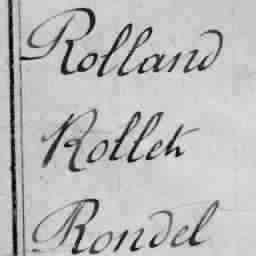 Rolland
Rollet
Rondel